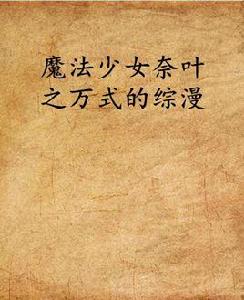 魔法少女奈叶
之万式的综漫